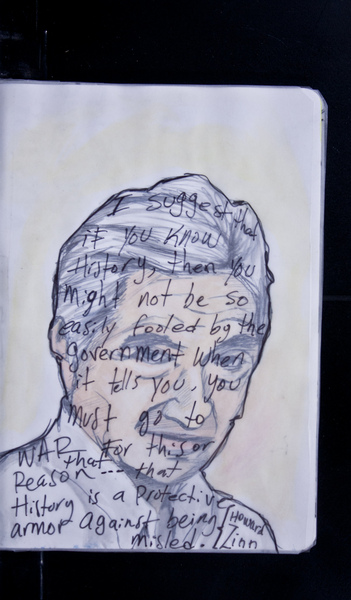 I suggest that
if you know
History, then you
might not be so
easily fooled by the
government when
it tells you, you
must go to
WAR for this or
that
Reason --- that
History is a Protective
armor against being
misled.
Howard
Zinn